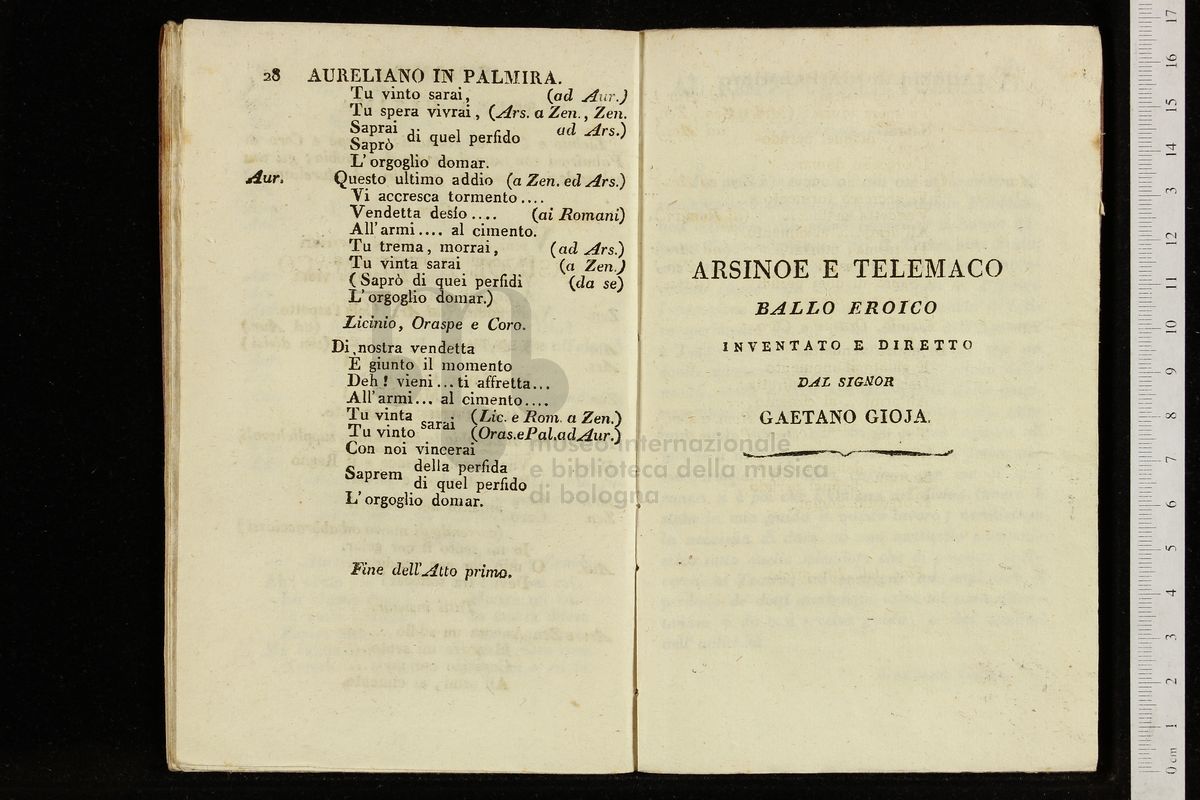 28 AURELIANO IN PALMIRA.
Tu vinto sarai, (ad Aur.)
Tu spera vivrai, (Ars. a Zen., Zen.
Saprai di quel perfido ad Ars.)
Saprò
L'orgoglio domar.
Aur. Questo ultimo addio (a Zen. ed Ars.)
Vi accresca tormento....
Vendetta desìo.... (ai Romani)
All'armi.... al cimento.
Tu trema, morrai, (ad Ars.)
Tu vinta sarai (a Zen.)
(Saprò di quei perfidi (da se)
L'orgoglio domar.)
Licinio, Oraspe e Coro.
Di nostra vendetta
E giunto il momento
Deh! vieni...ti affretta...
All'armi... al cimento....
Tu vinta sarai (Lic. e Rom. a Zen.)
Tu vinto (Oras.ePal.adAur.)
Con noi vincerai
Saprem della perfida
di quel perfido
L'orgoglio domar.
Fine dell'Atto primo.
ARSINOE E TELEMACO
BALLO EROICO
INVENTATO E DIRETTO
DAL SIGNOR
GAETANO GIOJA.
museo internazionale
e biblioteca della musica
di bologna
0 cm 1 2 3 4 5 6 7 8 9 10 11 12 13 14 15 16 17